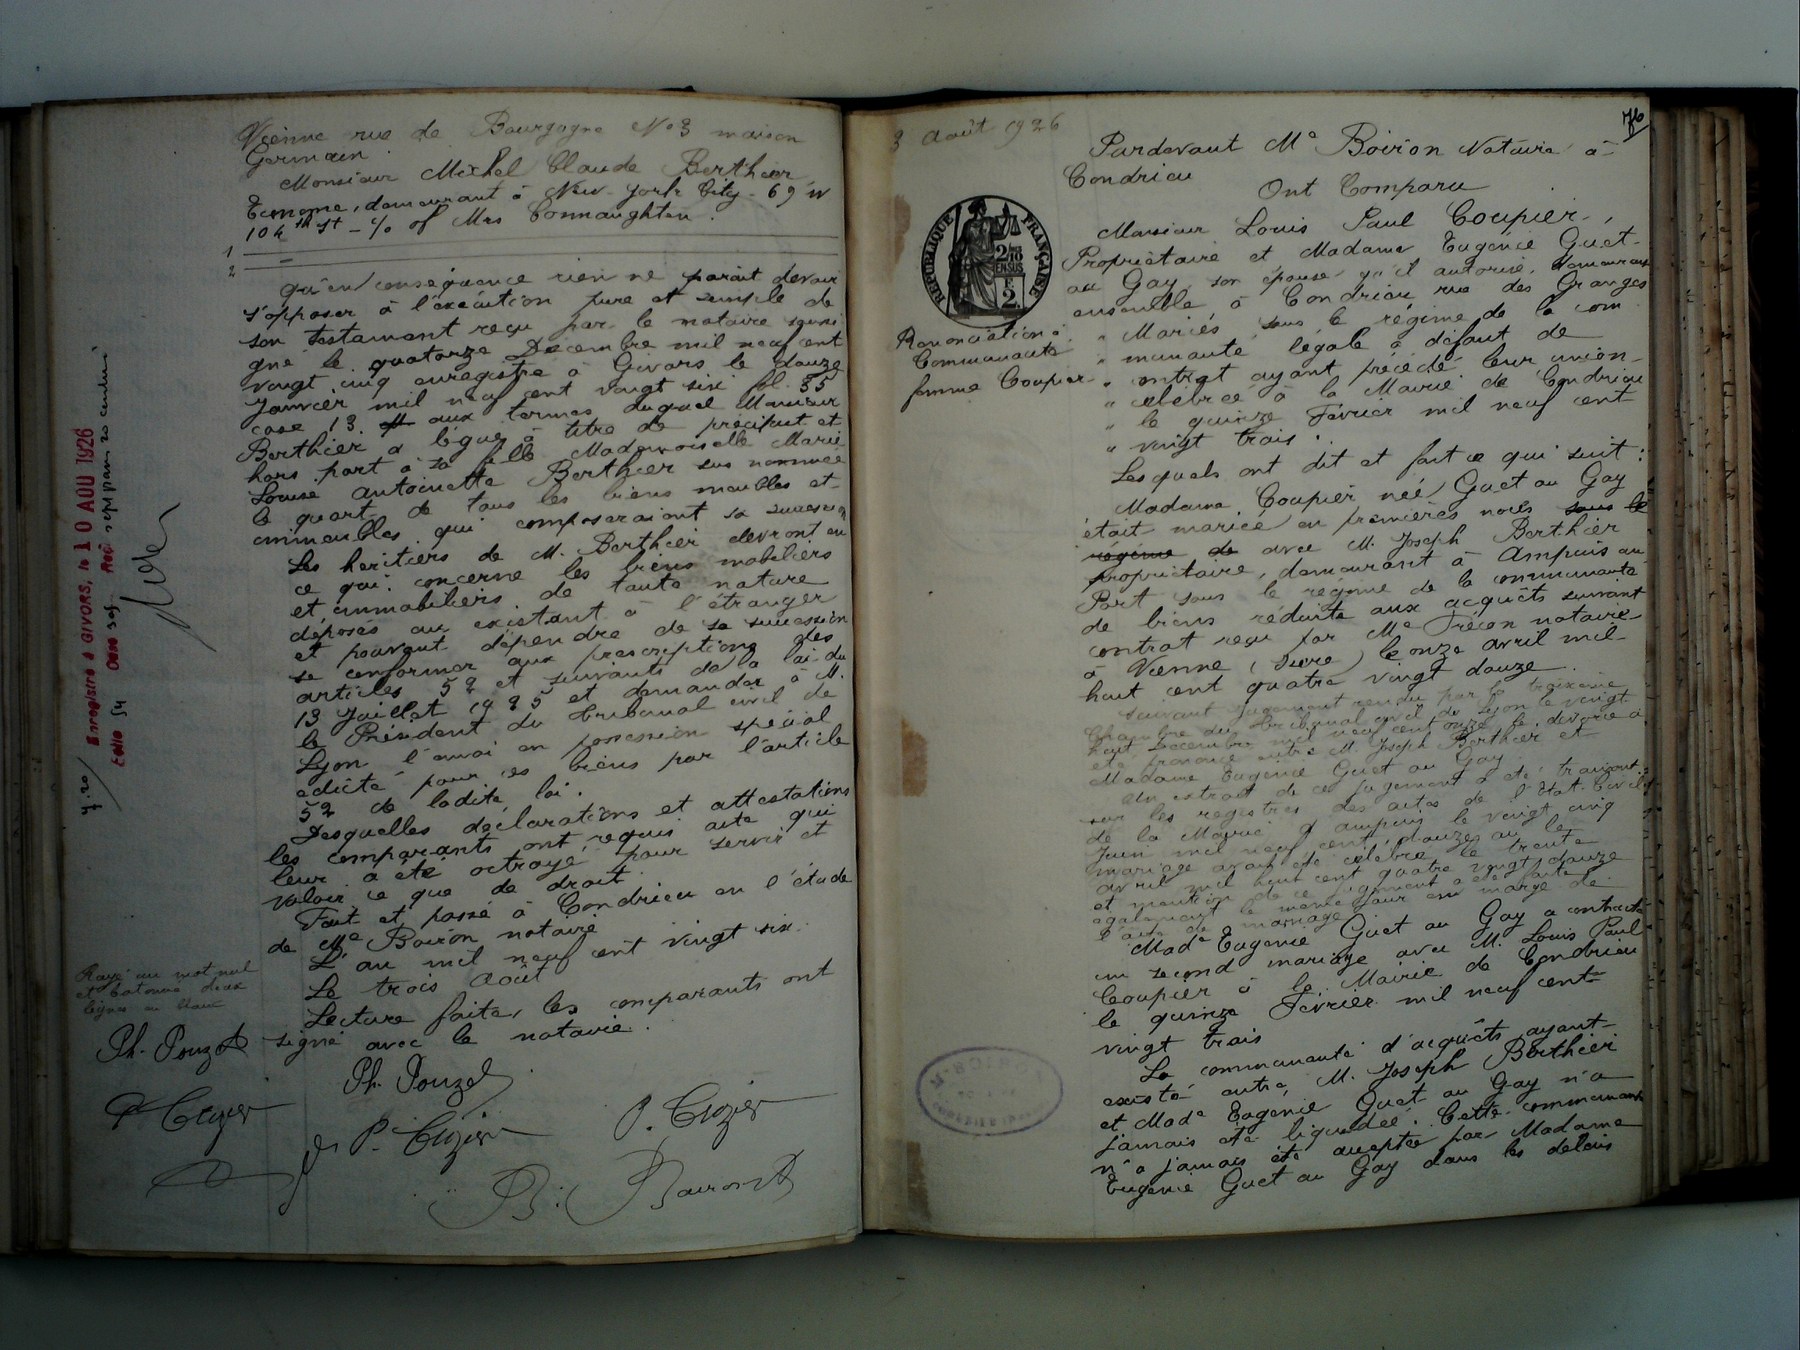 Vienne rue de Bourgogne No 3 maison
Germain.
Monsieur Michel Claude Berthier
demeurant à New-York City - 69 W
104 th St - % of Mrs Connaughton.
1
2
qu'en conséquence rien ne parait devoir
s'opposer à l'exécution pure et simple de
son testament reçu par le notaire soussi
gné le quatorze Décembre mil neuf cent
vingt cinq enregistré à Givors le douze
Janvier mil neuf cent vingt six fol. 35
case 13. aux termes duquel Monsieur
Berthier a légué à titre de préciput et
hors part à sa fille Mademoiselle Marie
Louise Antoinette Berthier sus nommée
le quart de tous les biens meubles et
immeubles qui composeraient sa succession
Les héritiers de M. Berthier devront en
ce qui concerne les biens mobiliers
et immobiliers de toute nature
déposés ou existant à l'étranger
et pouvant dépendre de sa succession
se conformer aux prescriptions des
articles 52 et suivants de la loi du
13 Juillet 1925 et demander à M.
le Président du Tribunal civil de
Lyon l'envoi en possession spécial
édicté pour ces biens par l'article
52 de ladite loi.
Desquelles déclarations et attestations
les comparants ont requis acte qui
leur a été octroyé pour servir et
valoir ce que de droit.
Fait et passé à Condrieu en l'étude
de Me Boiron notaire
L'an mil neuf cent vingt six.
Le trois Août
Lecture faite, les comparants ont
signé avec le notaire.
Rayé un mot nul
et bâtonné deux
lignes en blanc
Ph. Pouzet
Crozier
Ph. Pouzet
P. Crozier
P. Crozier
B. Boiron
Enregistré à GIVORS, le 10 AOU 1926
Folio 54 Case 305 Reçu
3 Août 1926
76
RÉPUBLIQUE FRANÇAISE
2/10
EN SUS
2F
Renonciation à
Communauté
femme Coupier
Pardevant Me Boiron Notaire à
Condrieu
Ont Comparu
Monsieur Louis Paul Coupier,
Propriétaire et Madame Eugénie Guet
au Gay son épouse qu'il autorise, demeurant
ensemble à Condrieu rue des Granges
" Mariés sous le régime de la com
" munauté légale à défaut de
" contrat ayant précédé leur union
" célébrée à la Mairie de Condrieu
" le quinze Février mil neuf cent
" vingt trois.
Lesquels ont dit et fait ce qui suit:
Madame Coupier née Guet au Gay
était mariée en premières noces sous le
régime de avec M. Joseph Berthier
propriétaire, demeurant à Ampuis au
Port sous le régime de la communauté
de biens réduite aux acquêts suivant
contrat reçu par Me Frécon notaire
à Vienne (Isère) le onze avril mil
huit cent quatre vingt douze.
Suivant jugement rendu par la troisième
Chambre du Tribunal civil de Lyon le vingt
huit Décembre mil neuf cent onze le divorce a
été prononcé entre M. Joseph Berthier et
Madame Eugénie Guet au Gay.
Un extrait de ce jugement a été transcrit
sur les registres des actes de l'Etat Civil
de la Mairie d'Ampuis le vingt cinq
Juin mil neuf cent douze, où le
mariage avait été célébré le trente
avril mil huit cent quatre vingt douze
et mention de ce jugement a été faite
également le même jour en marge de
l'acte de mariage
Made Eugénie Guet au Gay a contracté
un second mariage avec M. Louis Paul
Coupier à la Mairie de Condrieu
le quinze Février mil neuf cent
vingt trois
La communauté d'acquêts ayant
existé entre M. Joseph Berthier
et Made Eugénie Guet au Gay n'a
jamais été liquidée. Cette communauté
n'a jamais été acceptée par Madame
Eugénie Guet au Gay dans les délais